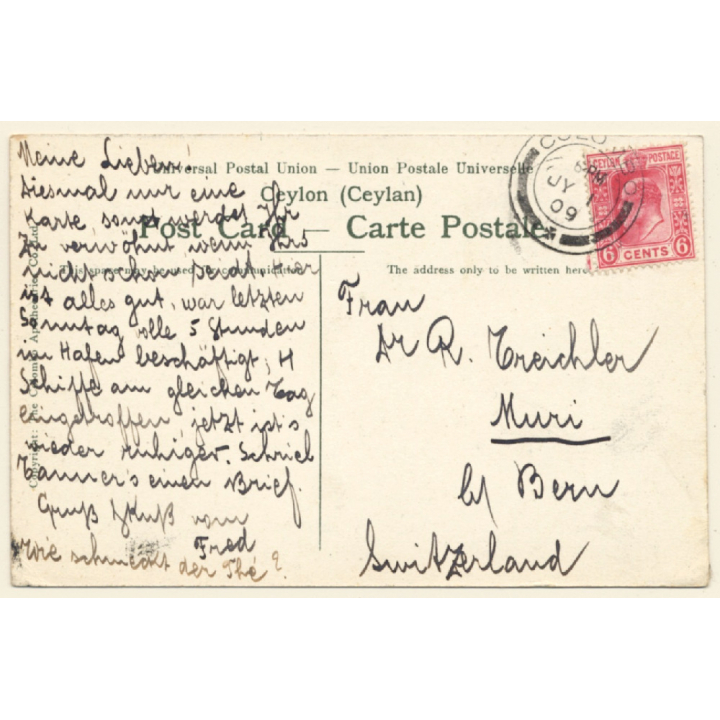 Meine Lieben!
Diesmal nur eine
Karte sonst werdet Ihr
zu verwöhnt wenn Ihrs
nicht schon seid. Hier
ist alles gut, war letzten
Sonntag volle 5 Stunden
im Hafen beschäftigt, 11
Schiffe am gleichen Tag
eingetroffen, jetzt ist's
wieder ruhiger. Schrieb
Tanner's einen Brief.
Gruß & Kuß vom
Fred
Wie schmeckt der Thé?
Universal Postal Union — Union Postale Universelle
Ceylon (Ceylan)
Post Card — Carte Postale
This space may be used for communication
The address only to be written here
Copyright: The Colombo Apothecaries Co. Ltd.
Frau
Dr R. Treichler
Muri
b/ Bern
Switzerland
COLO
JY 1
09
CEYLON POSTAGE
6 CENTS 6